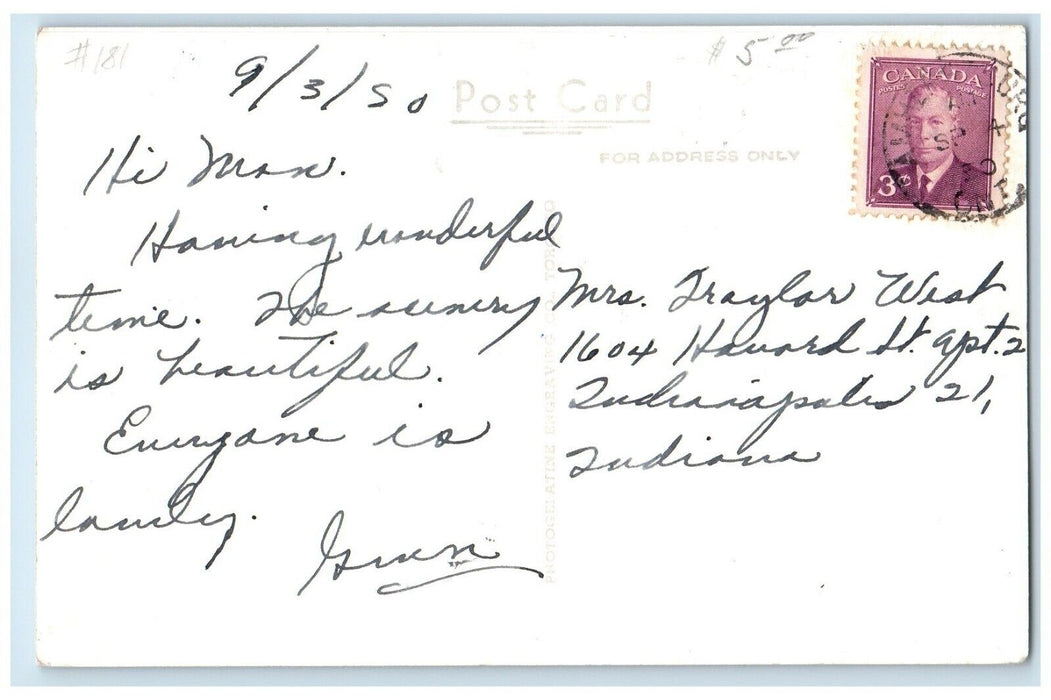 #181
$5.00
9/3/50
Post Card
FOR ADDRESS ONLY
CANADA
POSTES POSTAGE
3¢
SP 4
50
ONT
Hi Mom.
Having wonderful
time. The scenery
is beautiful.
Everyone is
lovely.
Gwen
Mrs. Traylor West
1604 Howard St. apt. 2
Indianapolis 21,
Indiana
PHOTOGELATINE ENGRAVING CO. TORONTO